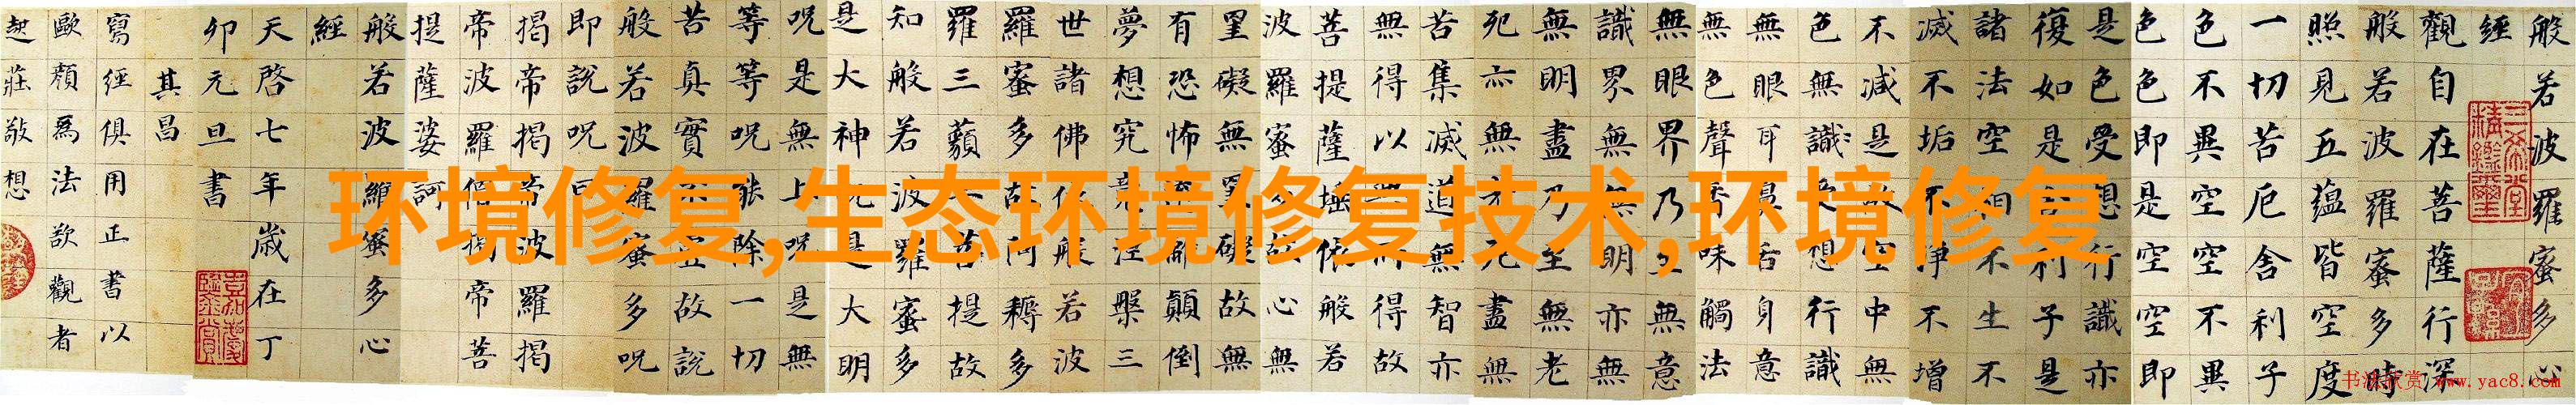 般若波羅蜜多心
經
觀自在菩薩行深
般若波羅蜜多時
照見五蘊皆空度
一切苦厄舍利子
色不異空空不異
色色即是空空即
是色受想行識亦
復如是舍利子是
諸法空相不生不
滅不垢不淨不增
不減是故空中無
色無識受想行識
無眼耳鼻舌身意
無色聲香味觸法
無眼界乃至無意
識界無無明亦無
無明盡乃至無老
死亦無老死盡無
苦集滅道無智亦
無得以無所得故
菩提薩埵依般若
波羅蜜多故心無
罣礙無罣礙故無
有恐怖遠離顛倒
夢想究竟涅槃三
世諸佛依般若波
羅蜜多故阿耨多
羅三藐三菩提故
知般若波羅蜜多
是大神呪是大明
呪是無上呪是無
等等呪能除一切
苦真實不虛故說
般若波羅蜜多呪
即說呪曰
揭帝揭帝波羅揭
帝波羅僧揭帝菩
提薩婆訶
般若波羅蜜多心
經
天啓七年歲在丁
卯元旦書
其昌
寫經俱用正書以
歐顏爲法欲觀者
起莊敬想
环境修复,生态环境修复技术,环境修复
书法欣赏 www.yac8.com